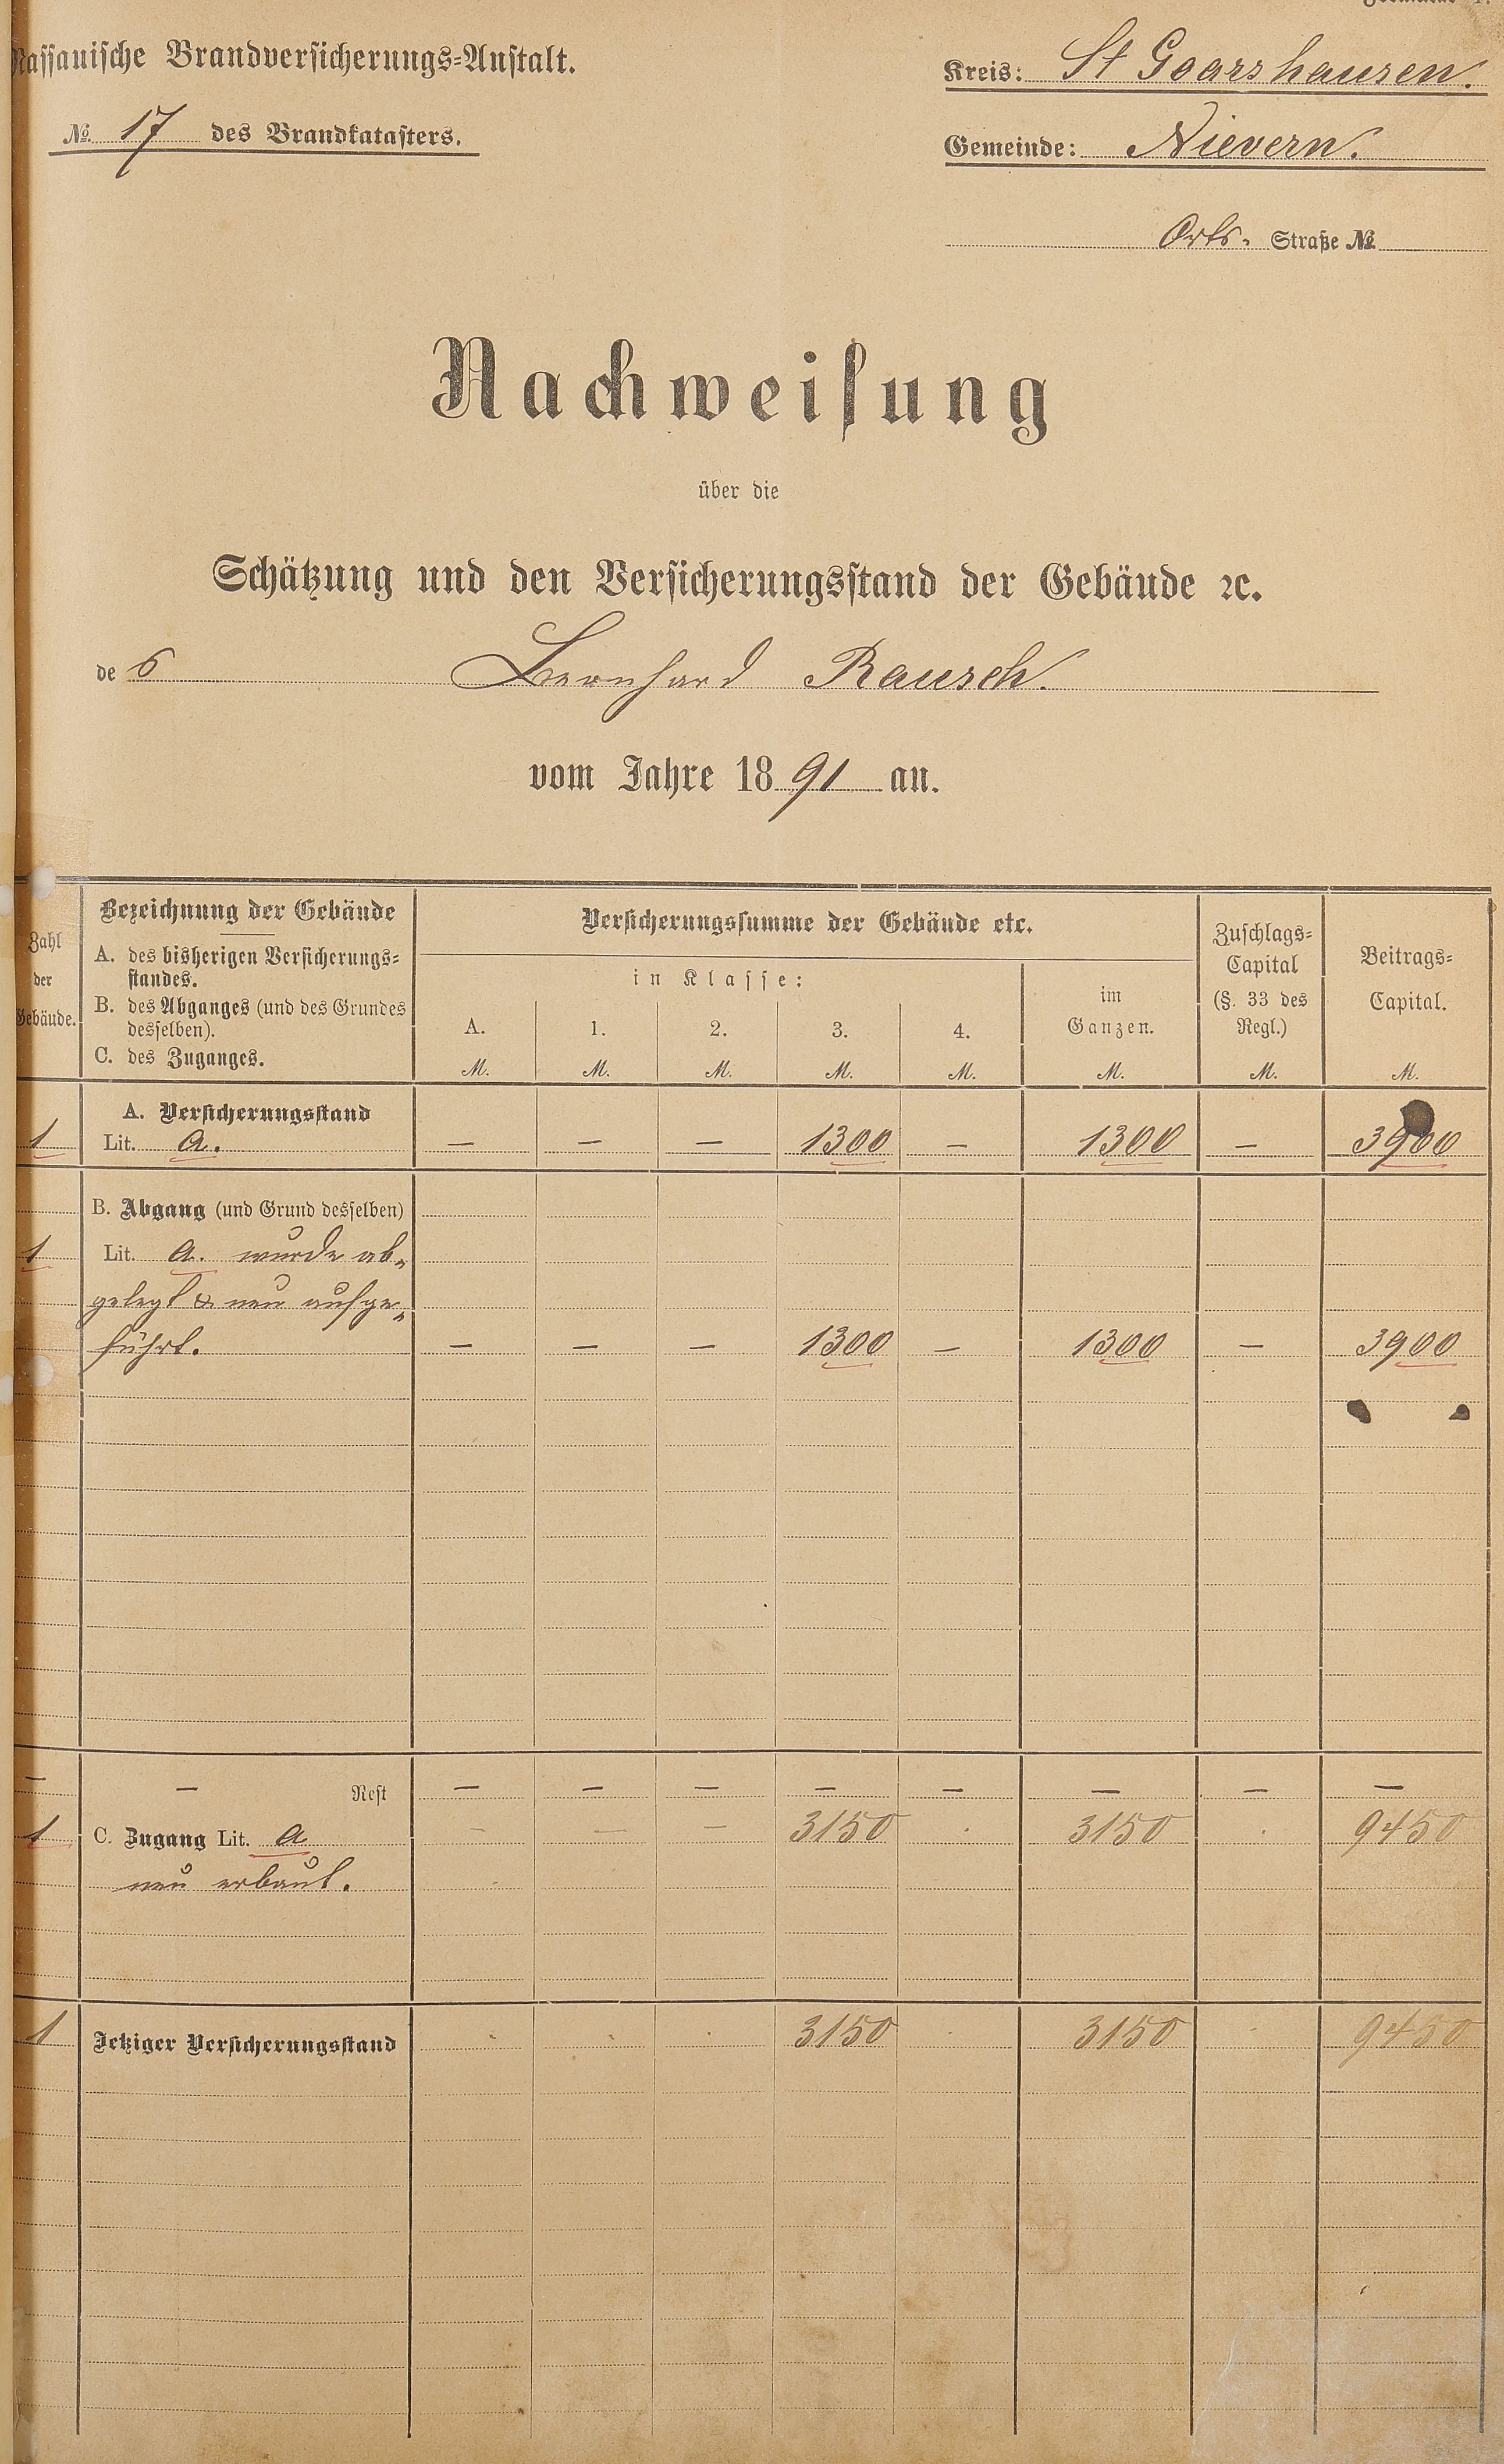 Nassauische Brandversicherungs-Anstalt.
Kreis: St Goarshausen.
№ 17 des Brandkatasters.
Gemeinde: Nievern.
Orts- Straße №
Nachweisung
über die
Schätzung und den Versicherungsstand der Gebäude ꝛc.
de s Bernhard Rausch.
vom Jahre 1891 an.
Zahl der Gebäude.
Bezeichnung der Gebäude
A. des bisherigen Versicherungs-
standes.
B. des Abganges (und des Grundes
desselben).
C. des Zuganges.
Versicherungssumme der Gebäude etc.
in Klasse:
A. 1. 2. 3. 4.
im
Ganzen.
Zuschlags-
Capital
(§. 33 des
Regl.)
Beitrags-
Capital.
M. M. M. M. M. M. M. M.
A. Versicherungsstand
1 Lit. a. — — — 1300 — 1300 — 3900
B. Abgang (und Grund desselben)
1 Lit. a. wurde ab-
gelegt & neu aufge-
führt. — — — 1300 — 1300 — 3900
— — Rest — — — — — — — —
1 C. Zugang Lit. a — — — 3150 . 3150 . 9450
neu erbaut.
1 Jetziger Versicherungsstand . . . 3150 . 3150 . 9450